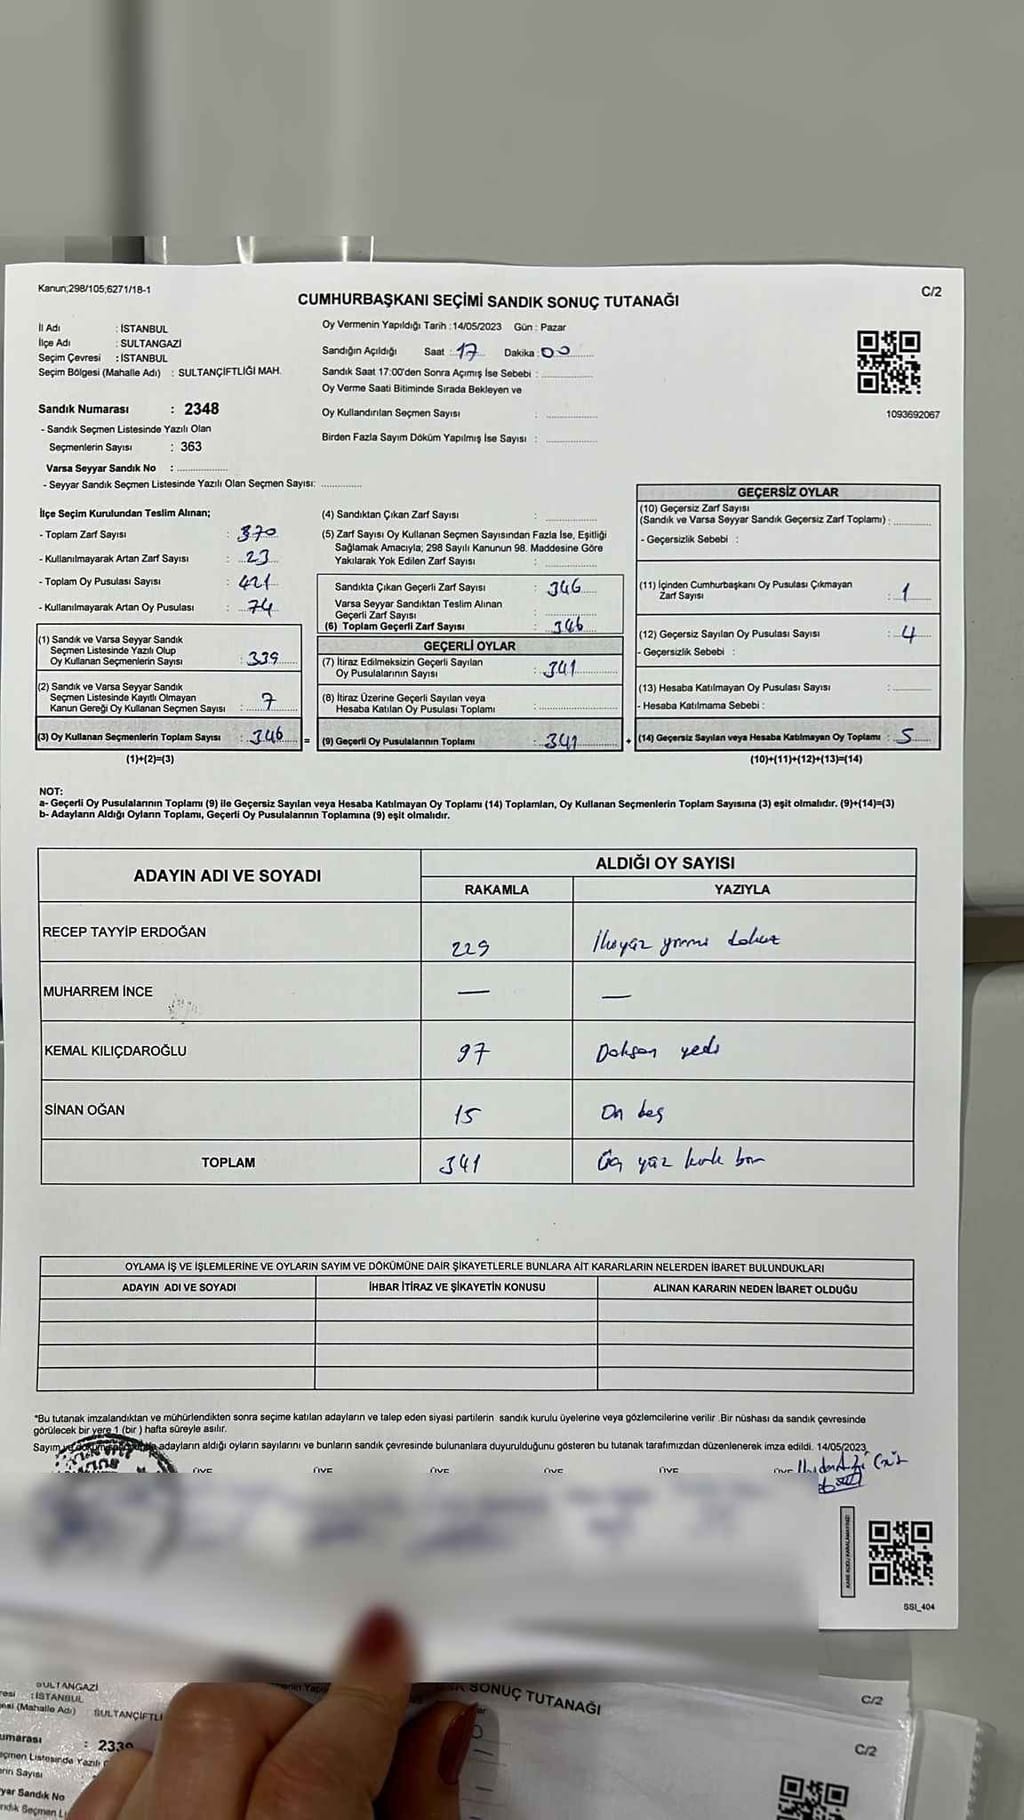 Kanun;298/105;6271/18-1
C/2
CUMHURBAŞKANI SEÇİMİ SANDIK SONUÇ TUTANAĞI
İl Adı : İSTANBUL
İlçe Adı : SULTANGAZİ
Seçim Çevresi : İSTANBUL
Seçim Bölgesi (Mahalle Adı) : SULTANÇİFTLİĞİ MAH.
Oy Vermenin Yapıldığı Tarih : 14/05/2023 Gün : Pazar
Sandığın Açıldığı Saat : 17 Dakika : 00
Sandık Saat 17:00'den Sonra Açımış İse Sebebi :
Oy Verme Saati Bitiminde Sırada Bekleyen ve
Oy Kullandırılan Seçmen Sayısı :
Birden Fazla Sayım Döküm Yapılmış İse Sayısı :
1093692067
Sandık Numarası : 2348
- Sandık Seçmen Listesinde Yazılı Olan
Seçmenlerin Sayısı : 363
Varsa Seyyar Sandık No :
- Seyyar Sandık Seçmen Listesinde Yazılı Olan Seçmen Sayısı:
İlçe Seçim Kurulundan Teslim Alınan;
- Toplam Zarf Sayısı : 370
- Kullanılmayarak Artan Zarf Sayısı : 23
- Toplam Oy Pusulası Sayısı : 421
- Kullanılmayarak Artan Oy Pusulası : 74
(1) Sandık ve Varsa Seyyar Sandık
Seçmen Listesinde Yazılı Olup
Oy Kullanan Seçmenlerin Sayısı : 339
(2) Sandık ve Varsa Seyyar Sandık
Seçmen Listesinde Kayıtlı Olmayan
Kanun Gereği Oy Kullanan Seçmen Sayısı : 7
(3) Oy Kullanan Seçmenlerin Toplam Sayısı : 346 =
(1)+(2)=(3)
(4) Sandıktan Çıkan Zarf Sayısı :
(5) Zarf Sayısı Oy Kullanan Seçmen Sayısından Fazla İse, Eşitliği
Sağlamak Amacıyla; 298 Sayılı Kanunun 98. Maddesine Göre
Yakılarak Yok Edilen Zarf Sayısı :
Sandıkta Çıkan Geçerli Zarf Sayısı : 346
Varsa Seyyar Sandıktan Teslim Alınan
Geçerli Zarf Sayısı :
(6) Toplam Geçerli Zarf Sayısı : 346
GEÇERLİ OYLAR
(7) İtiraz Edilmeksizin Geçerli Sayılan
Oy Pusulalarının Sayısı : 341
(8) İtiraz Üzerine Geçerli Sayılan veya
Hesaba Katılan Oy Pusulası Toplamı :
(9) Geçerli Oy Pusulalarının Toplamı : 341 +
GEÇERSİZ OYLAR
(10) Geçersiz Zarf Sayısı
(Sandık ve Varsa Seyyar Sandık Geçersiz Zarf Toplamı) :
- Geçersizlik Sebebi :
(11) İçinden Cumhurbaşkanı Oy Pusulası Çıkmayan
Zarf Sayısı : 1
(12) Geçersiz Sayılan Oy Pusulası Sayısı : 4
- Geçersizlik Sebebi :
(13) Hesaba Katılmayan Oy Pusulası Sayısı :
- Hesaba Katılmama Sebebi :
(14) Geçersiz Sayılan veya Hesaba Katılmayan Oy Toplamı : 5
(10)+(11)+(12)+(13)=(14)
NOT:
a- Geçerli Oy Pusulalarının Toplamı (9) ile Geçersiz Sayılan veya Hesaba Katılmayan Oy Toplamı (14) Toplamları, Oy Kullanan Seçmenlerin Toplam Sayısına (3) eşit olmalıdır. (9)+(14)=(3)
b- Adayların Aldığı Oyların Toplamı, Geçerli Oy Pusulalarının Toplamına (9) eşit olmalıdır.
ADAYIN ADI VE SOYADI
ALDIĞI OY SAYISI
RAKAMLA YAZIYLA
RECEP TAYYİP ERDOĞAN 229 İkiyüz yirmi dokuz
MUHARREM İNCE — —
KEMAL KILIÇDAROĞLU 97 Doksan yedi
SİNAN OĞAN 15 On beş
TOPLAM 341 Üç yüz kırk bir
OYLAMA İŞ VE İŞLEMLERİNE VE OYLARIN SAYIM VE DÖKÜMÜNE DAİR ŞİKAYETLERLE BUNLARA AİT KARARLARIN NELERDEN İBARET BULUNDUKLARI
ADAYIN ADI VE SOYADI İHBAR İTİRAZ VE ŞİKAYETİN KONUSU ALINAN KARARIN NEDEN İBARET OLDUĞU
*Bu tutanak imzalandıktan ve mühürlendikten sonra seçime katılan adayların ve talep eden siyasi partilerin sandık kurulu üyelerine veya gözlemcilerine verilir .Bir nüshası da sandık çevresinde
görülecek bir yere 1 (bir ) hafta süreyle asılır.
Sayım ve adayların aldığı oyların sayılarını ve bunların sandık çevresinde bulunanlara duyurulduğunu gösteren bu tutanak tarafımızdan düzenlenerek imza edildi. 14/05/2023
ÜYE ÜYE ÜYE ÜYE ÜYE ÜYE
SSI_404
SULTANGAZİ
: İSTANBUL
(Mahalle Adı) SULTANÇİFTLİ
SONUÇ TUTANAĞI
C/2
: 2339
C/2